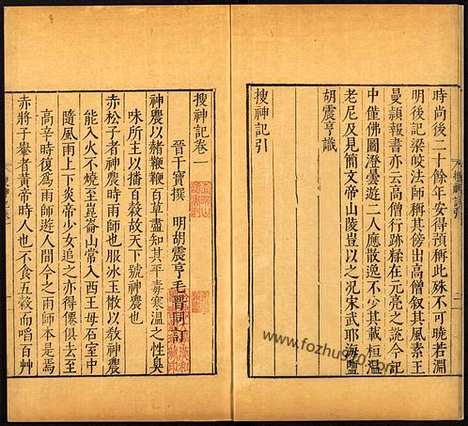 時尚後二十餘年安得預稱此殊不可曉若淵
明後記梁皎法師稱其傍出高僧叙其風素王
曼頴報書亦云高僧行跡糅在元亮之說今記
中僅佛圖澄曇遊二人應散逸不少其載桓溫
老尼及見簡文帝山陵豈以之况宋武耶海鹽
胡震亨識
搜神記引
搜神記卷一
晉干寶撰 明胡震亨毛晉同訂
神農以赭鞭鞭百草盡知其平毒寒溫之性臭
味所主以播百穀故天下號神農也
赤松子者神農時雨師也服冰玉散以教神農
能入火不燒至崑崙山常入西王母石室中
隨風雨上下炎帝少女追之亦得僊俱去至
高辛時復爲雨師遊人間今之雨師本是焉
赤將子轝者黄帝時人也不食五穀而啗百艸
www.fozhu920.com